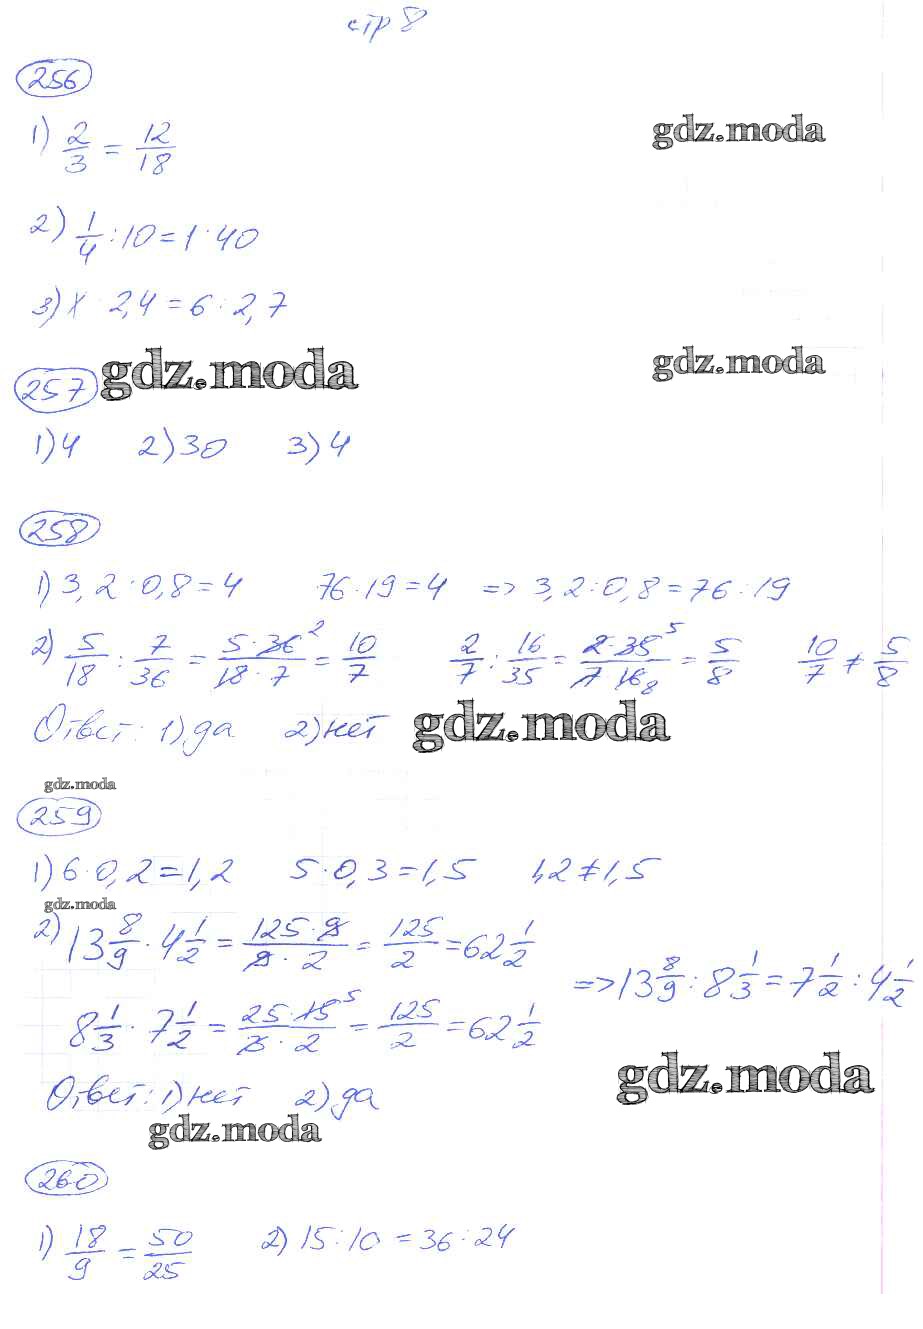 стр 8
256
1) 2/3 = 12/18
gdz.moda
2) 1/4 : 10 = 1 : 40
3) x : 2,4 = 6 : 2,7
257 gdz.moda gdz.moda
1) 4 2) 30 3) 4
258
1) 3,2 : 0,8 = 4 76 : 19 = 4 => 3,2 : 0,8 = 76 : 19
2) 5/18 : 7/36 = 5·36²/18·7 = 10/7 2/7 : 16/35 = 2·35⁵/7·16₈ = 5/8 10/7 ≠ 5/8
Ответ: 1) да 2) нет gdz.moda
gdz.moda
259
1) 6 · 0,2 = 1,2 5 · 0,3 = 1,5 1,2 ≠ 1,5
gdz.moda
2) 13 8/9 · 4 1/2 = 125·9/9·2 = 125/2 = 62 1/2
=> 13 8/9 : 8 1/3 = 7 1/2 : 4 1/2
8 1/3 · 7 1/2 = 25·15⁵/3·2 = 125/2 = 62 1/2
gdz.moda
Ответ: 1) нет 2) да
gdz.moda
260
1) 18/9 = 50/25 2) 15 : 10 = 36 : 24